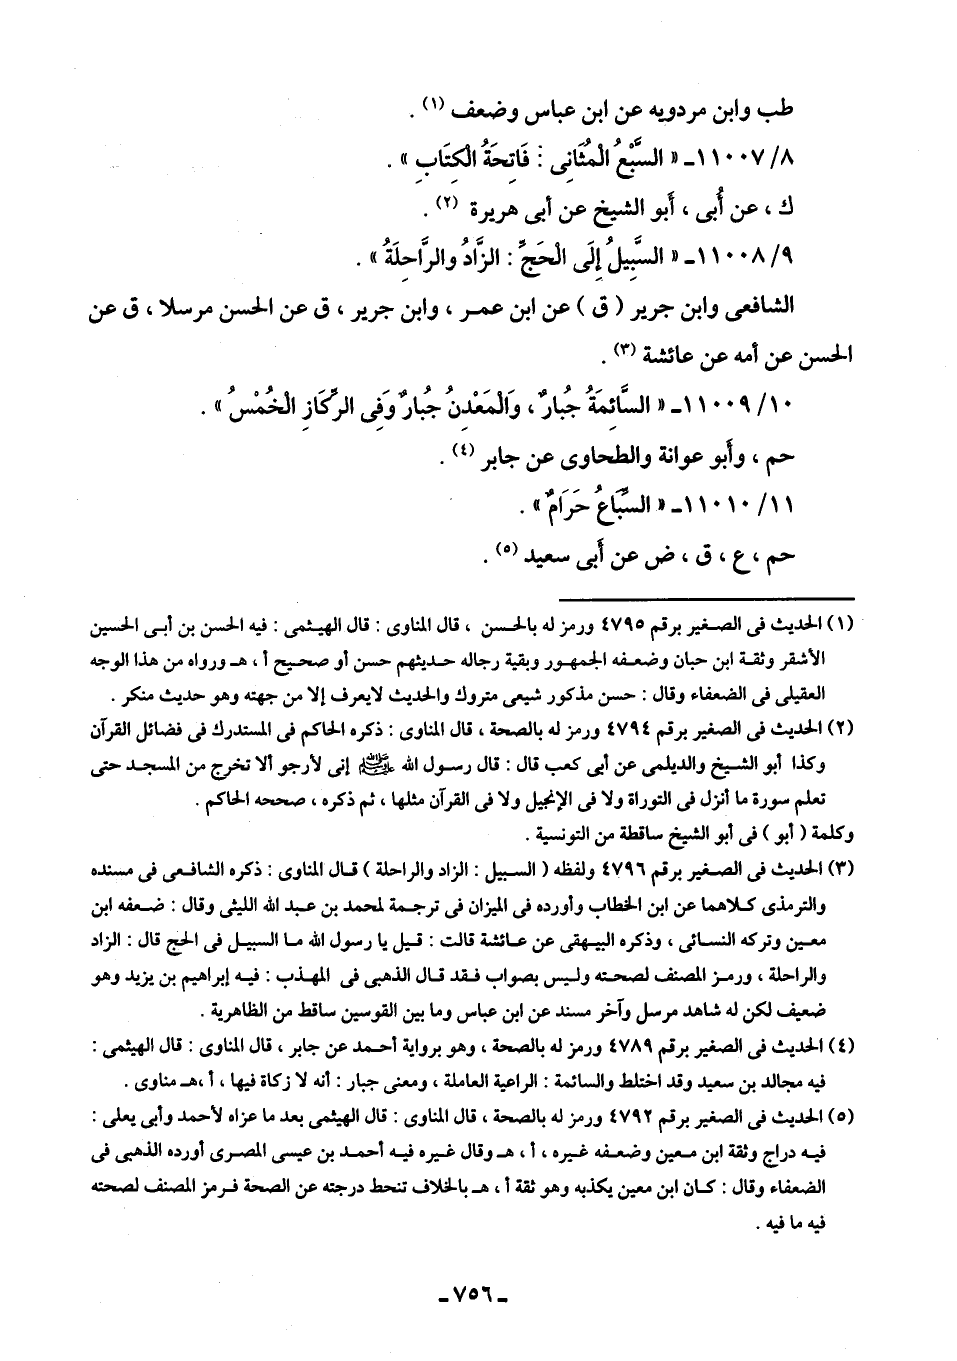 طب وابن مردويه عن ابن عباس وضعف (١) .
٨/ ١١٠٠٧ـ « السَّبْعُ الْمَثَانِى : فَاتِحَةُ الْكِتَابِ » .
ك ، عن أُبى ، أَبو الشيخ عن أبى هريرة (٢) .
٩/ ١١٠٠٨ـ « السَّبِيلُ إِلَى الْحَجِّ : الزَّادُ والرَّاحِلَةُ » .
الشافعى وابن جرير ( ق ) عن ابن عمـر ، وابن جرير ، ق عن الحسن مرسلا ، ق عن
الحسن عن أمه عن عائشة (٣) .
١٠/ ١١٠٠٩ـ « السَّائِمَةُ جُبارٌ ، وَالْمَعْدِنُ جُبارٌ وَفِى الرِّكَازِ الْخُمْسُ » .
حم ، وأَبو عوانة والطحاوى عن جابر (٤) .
١١/ ١١٠١٠ـ « السِّبَاعُ حَرَامٌ » .
حم ، ع ، ق ، ض عن أَبى سعيد (٥) .
(١) الحديث فى الصـغير برقم ٤٧٩٥ ورمز له بالحـسن ، قال المناوى : قال الهيـثمى : فيه الحسن بن أبـى الحسين
الأشقر وثقـة ابن حبان وضـعفه الجمهـور وبقية رجاله حـديثهم حسن أو صحـيح أ ، هـ ورواه من هذا الوجه
العقيلى فى الضعفاء وقال : حسن مذكور شيعى متروك والحديث لايعرف إلا من جهته وهو حديث منكر .
(٢) الحديث فى الصغير برقم ٤٧٩٤ ورمز له بالصحة ، قال المناوى : ذكره الحاكم فى المستدرك فى فضائل القرآن
وكذا أبو الشـيخ والديلمى عن أبى كعب قال : قال رسـول الله ﷺ إنى لأرجو ألا تخرج من المسجـد حتى
تعلم سورة ما أنزل فى التوراة ولا فى الإنجيل ولا فى القرآن مثلها ، ثم ذكره ، صححه الحاكم .
وكلمة ( أبو ) فى أبو الشيخ ساقطة من التونسية .
(٣) الحديث فى الصـغير برقم ٤٧٩٦ ولفظه ( السـبيل : الزاد والراحلة ) قـال المناوى : ذكره الشافـعى فى مسنده
والترمذى كـلاهما عن ابن الخطاب وأورده فى الميزان فى ترجمـة لمحمد بن عـبد الله الليثى وقال : ضـعفه ابن
معـين وتركه النسـائى ، وذكره البيـهقى عن عـائشة قالت : قـيل يا رسول الله مـا السبيـل فى الحج قال : الزاد
والراحلة ، ورمـز المصنف لصحـته ولـيس بصواب فـقد قـال الذهبى فى المهذب : فـيه إبراهيم بن يزيد وهو
ضعيف لكن له شاهد مرسل وآخر مسند عن ابن عباس وما بين القوسين ساقط من الظاهرية .
(٤) الحديث فى الصـغير برقـم ٤٧٨٩ ورمز له بالصحـة ، وهو برواية أحـمد عن جابر ، قال المناوى : قال الهيثمى :
فيه مجالد بن سعيد وقد اختلط والسائمة : الراعية العاملة ، ومعنى جبار : أنه لا زكاة فيها ، أ ،هـ مناوى .
(٥) الحديث فى الصغير برقم ٤٧٩٢ ورمز له بالصحة ، قال المناوى : قال الهيثمى بعد ما عزاه لأحمد وأبى يعلى :
فيـه دراج وثقة ابن مـعين وضـعفـه غيره ، أ ، هـ وقال غيره فيـه أحمـد بن عيسى المصرى أورده الذهبـى فى
الضعفاء وقال : كـان ابن معين يكذبه وهو ثقة أ ، هـ بالخلاف تنحط درجته عن الصحة فـرمز المصنف لصحته
فيه ما فيه .
ـ ٧٥٦ ـ